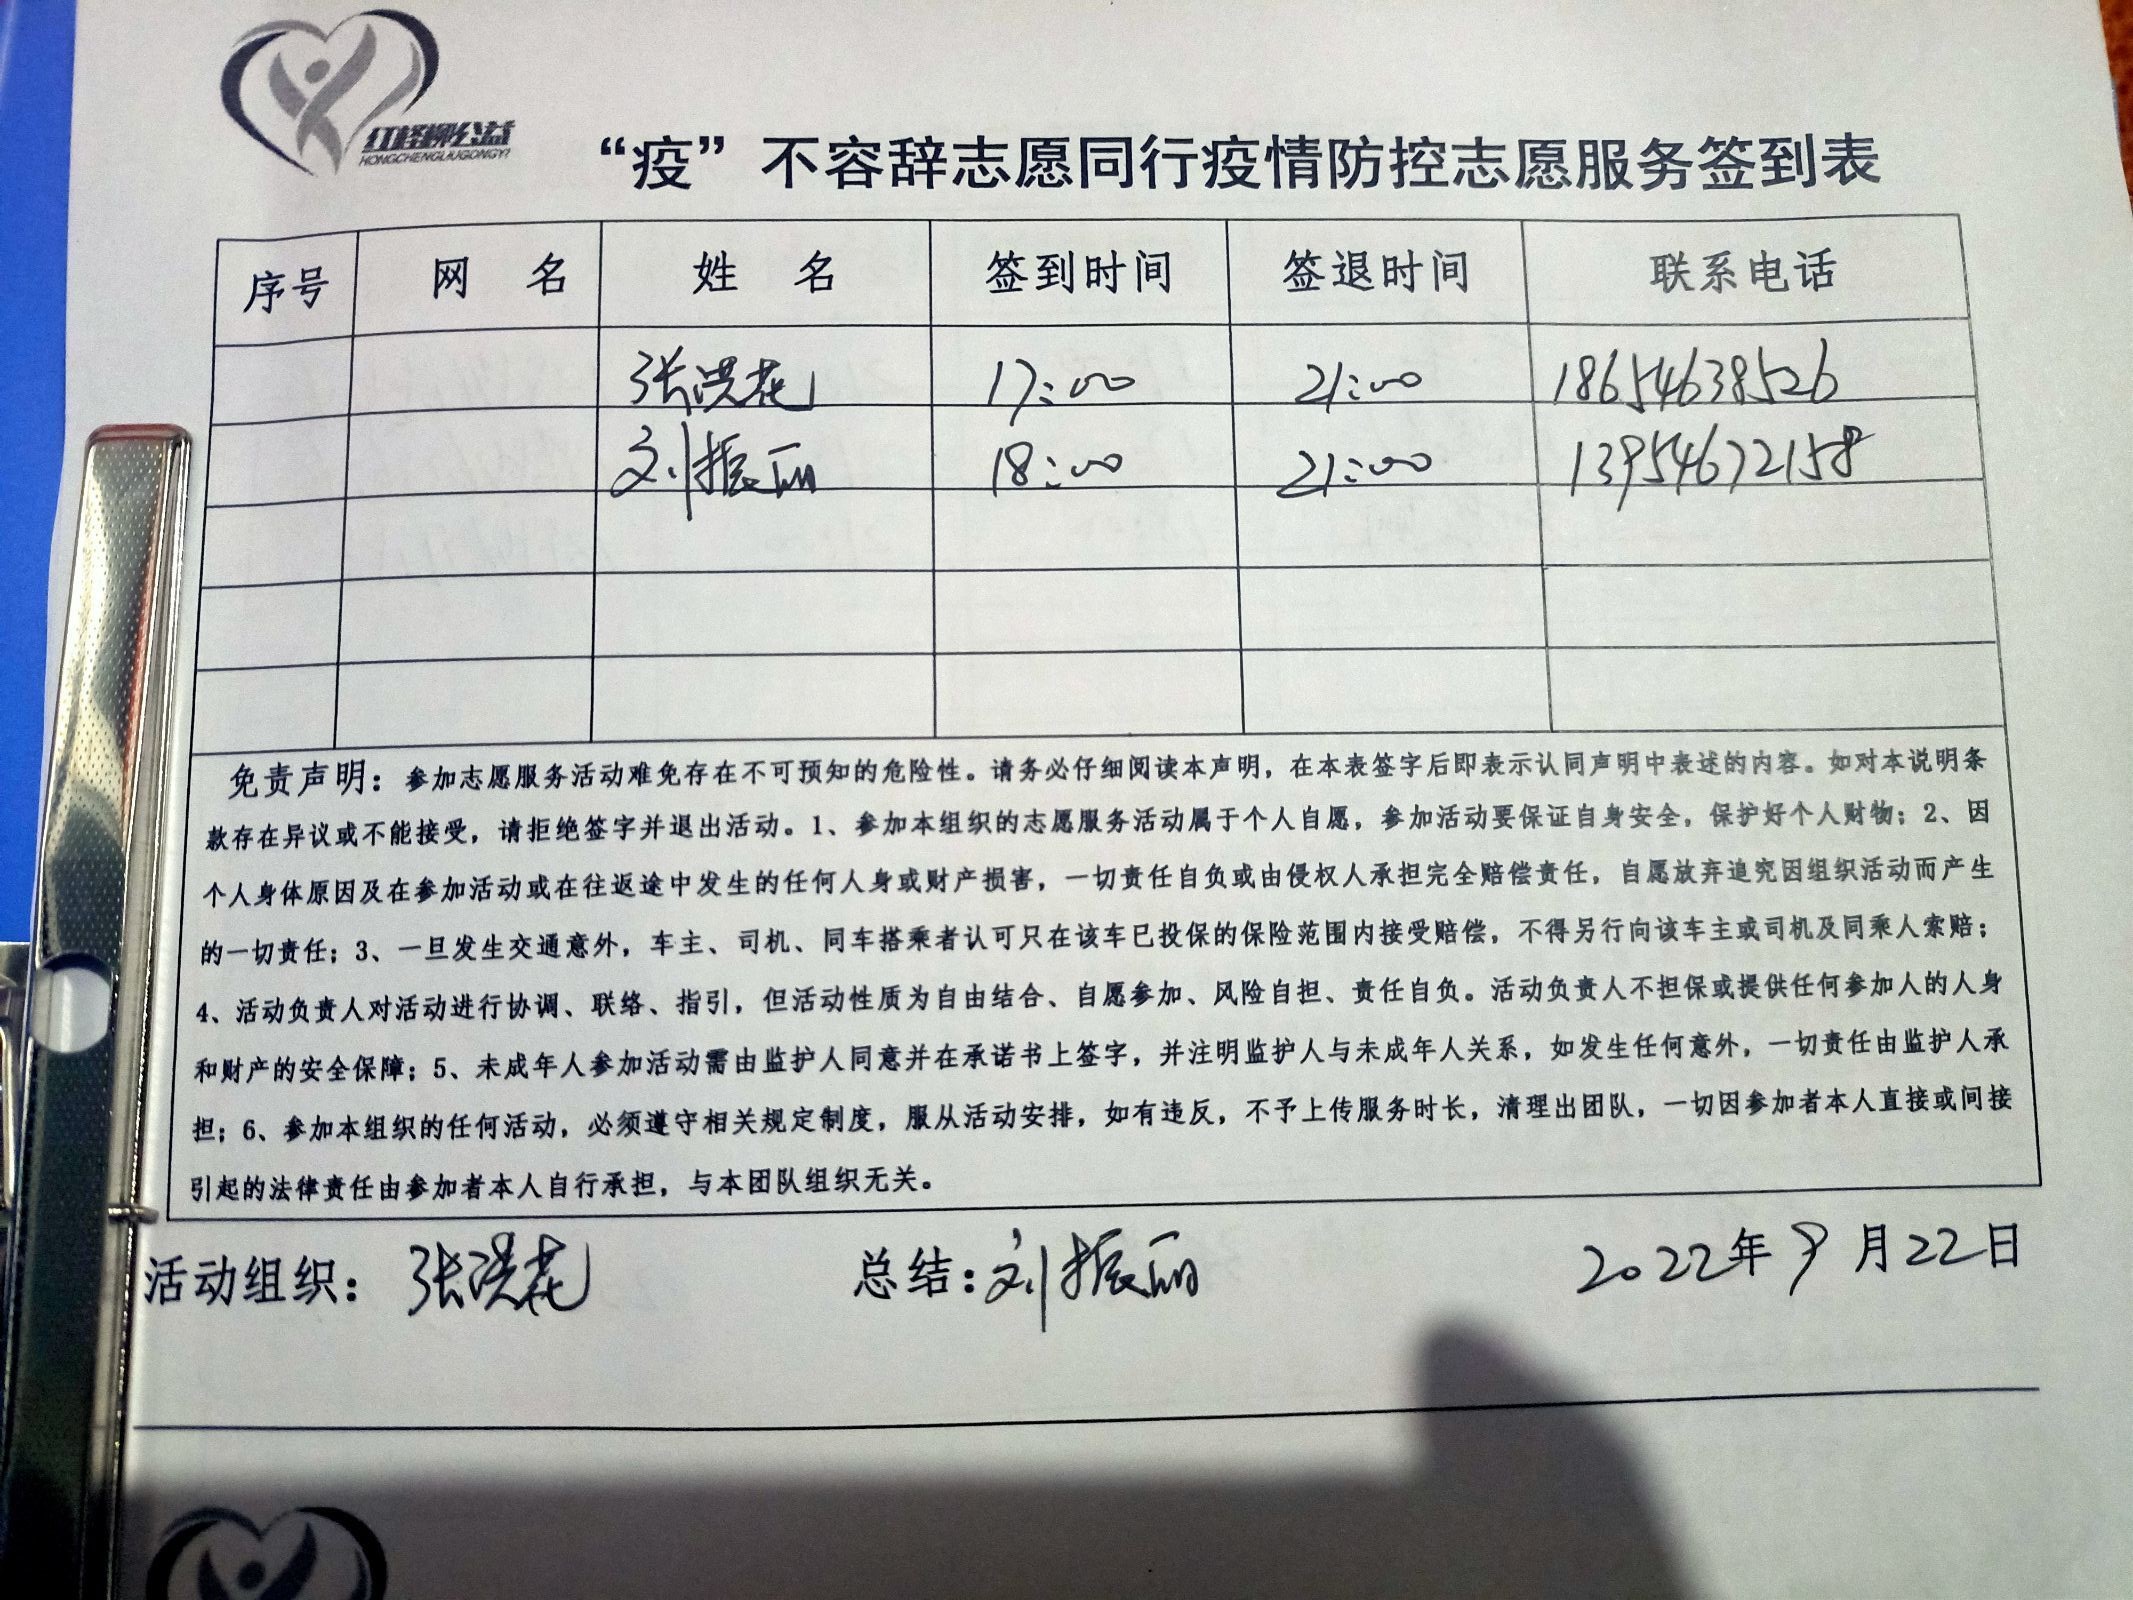 红柽柳公益
HONGCHENGLIUGONGYI
“疫”不容辞志愿同行疫情防控志愿服务签到表
序号 网 名 姓 名 签到时间 签退时间 联系电话
张洪花 17:00 21:00 18654638526
刘振丽 18:00 21:00 13954672158
免责声明：参加志愿服务活动难免存在不可预知的危险性。请务必仔细阅读本声明，在本表签字后即表示认同声明中表述的内容。如对本说明条
款存在异议或不能接受，请拒绝签字并退出活动。1、参加本组织的志愿服务活动属于个人自愿，参加活动要保证自身安全，保护好个人财物；2、因
个人身体原因及在参加活动或在往返途中发生的任何人身或财产损害，一切责任自负或由侵权人承担完全赔偿责任，自愿放弃追究因组织活动而产生
的一切责任；3、一旦发生交通意外，车主、司机、同车搭乘者认可只在该车已投保的保险范围内接受赔偿，不得另行向该车主或司机及同乘人索赔；
4、活动负责人对活动进行协调、联络、指引，但活动性质为自由结合、自愿参加、风险自担、责任自负。活动负责人不担保或提供任何参加人的人身
和财产的安全保障；5、未成年人参加活动需由监护人同意并在承诺书上签字，并注明监护人与未成年人关系，如发生任何意外，一切责任由监护人承
担；6、参加本组织的任何活动，必须遵守相关规定制度，服从活动安排，如有违反，不予上传服务时长，清理出团队，一切因参加者本人直接或间接
引起的法律责任由参加者本人自行承担，与本团队组织无关。
活动组织：张洪花 总结：刘振丽 2022年9月22日